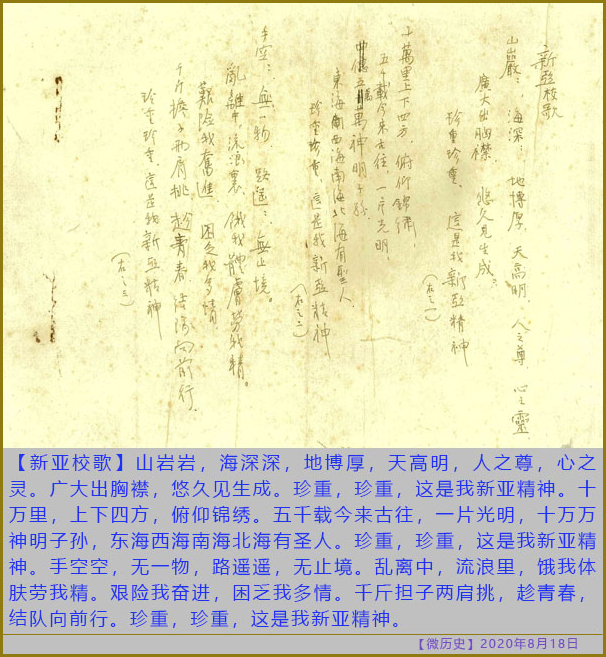 新亞校歌
山巖巖，海深深，地博厚，天高明，人之尊，心之靈
廣大出胸襟，悠久見生成。
珍重珍重，這是我新亞精神
（右之一）
十萬里上下四方，俯仰錦繡，
五千載今來古往，一片光明，
五萬萬神明子孫，
東海西海南海北海有聖人
珍重珍重，這是我新亞精神
（右之二）
手空空，無一物，路遙遙，無止境。
亂離中，流浪裏，餓我體膚勞我精。
艱險我奮進，困乏我多情
千斤擔子兩肩挑，趁青春，結隊向前行。
珍重珍重，這是我新亞精神
（右之三）
【新亚校歌】山岩岩，海深深，地博厚，天高明，人之尊，心之
灵。广大出胸襟，悠久见生成。珍重，珍重，这是我新亚精神。十
万里，上下四方，俯仰锦绣。五千载今来古往，一片光明，十万万
神明子孙，东海西海南海北海有圣人。珍重，珍重，这是我新亚精
神。手空空，无一物，路遥遥，无止境。乱离中，流浪里，饿我体
肤劳我精。艰险我奋进，困乏我多情。千斤担子两肩挑，趁青春，
结队向前行。珍重，珍重，这是我新亚精神。
【微历史】2020年8月18日